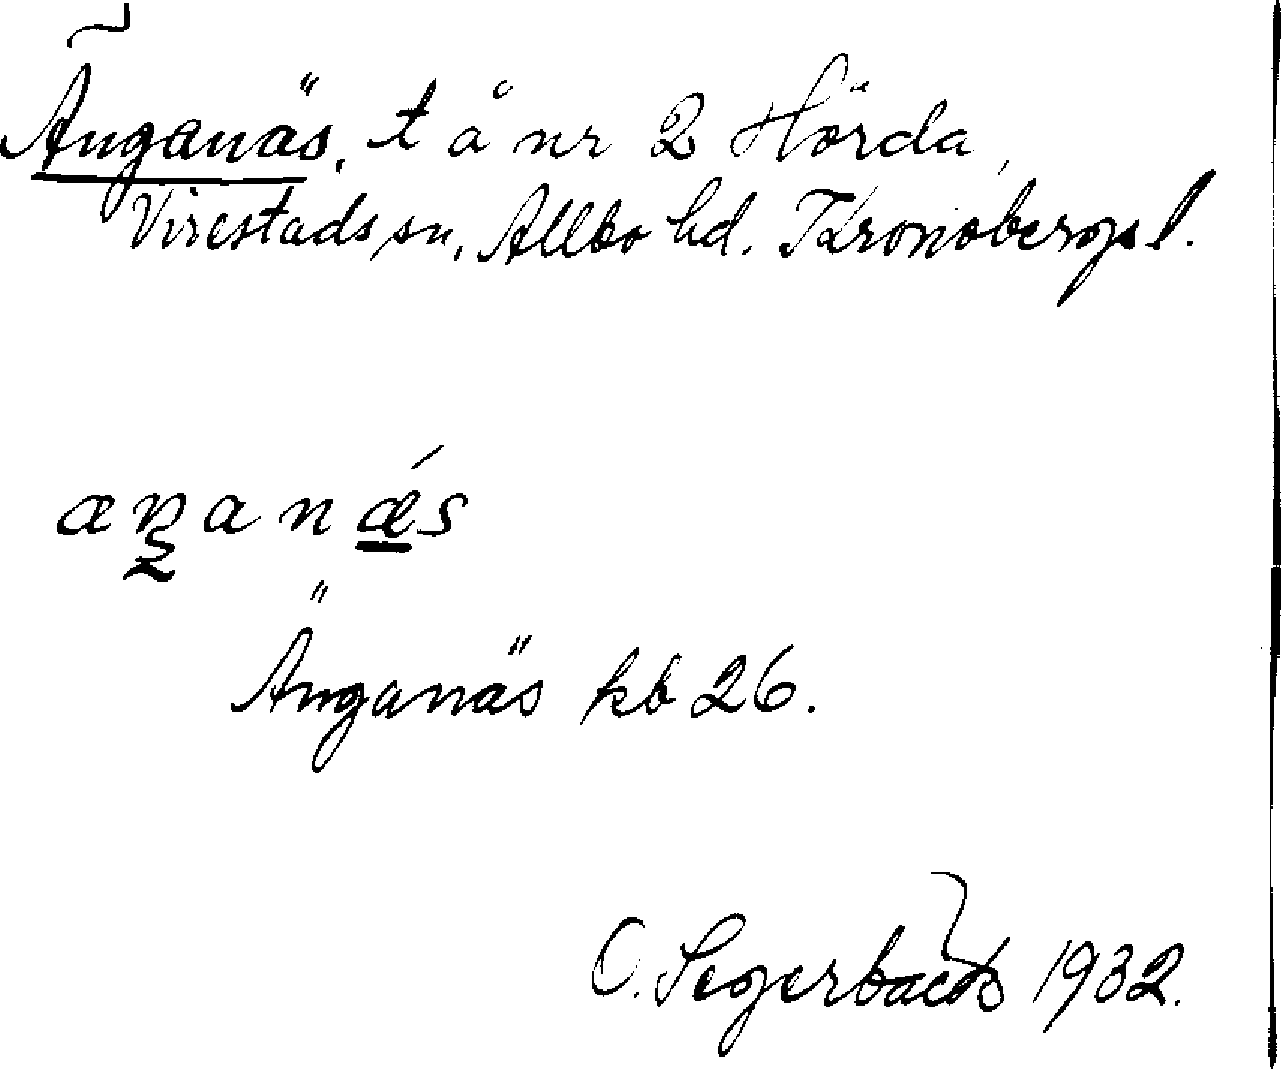 Änganäs, t å nr 2 Hörda,
Virestads sn, Allbo hd. Kronobergs l.
æŋanǽs
Änganäs kb 26.
O. Segerbäck 1932.